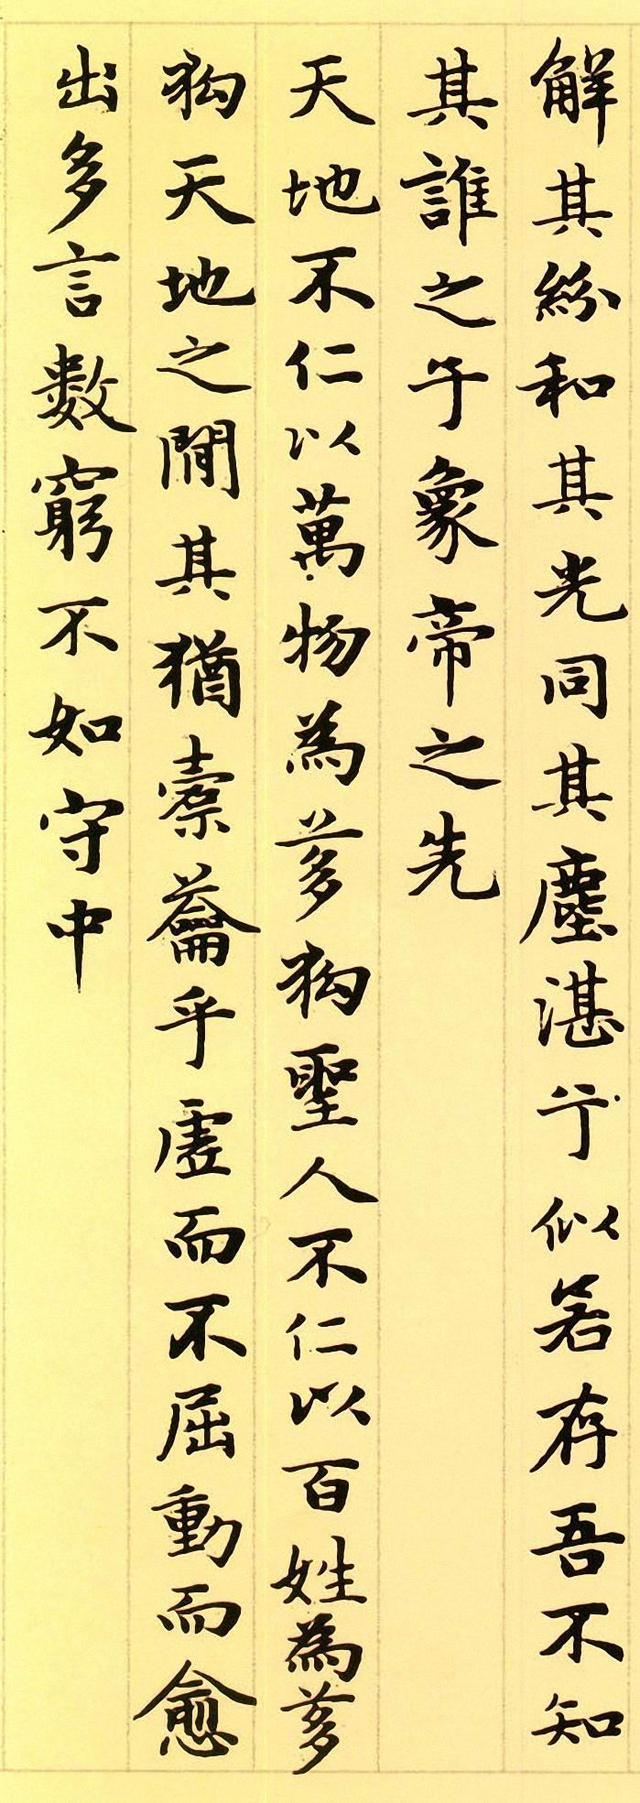 解其紛和其光同其塵湛兮似若存吾不知
其誰之子象帝之先
天地不仁以萬物為芻狗聖人不仁以百姓為芻
狗天地之間其猶橐籥乎虛而不屈動而愈
出多言數窮不如守中